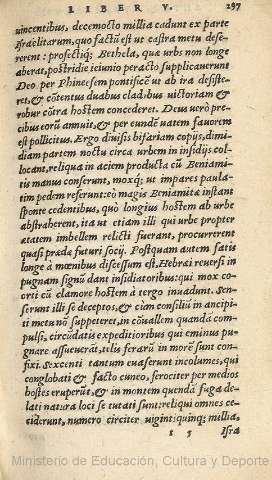 LIBER V. 297
uincentibus, decemocto millia cadunt ex parte
Israëlitarum, quo factũ est ut castra metu dese-
rerent: profectiq; Bethela, quæ urbs non longe
aberat, postridie ieiunio peracto supplicauerunt
Deo per Phineesem pontificẽ ut ab ira desiste-
ret, & cõtentus duabus cladibus uictoriam &
robur cõtra hostem concederet. Deus uerò pre-
cibus eorũ annuit, & per eundẽ uatem fauorem
est pollicitus. Ergo diuisis bifariam copijs, dimi-
diam partem noctu circa urbem in insidijs col-
locant, reliqua in aciem producta cũ Beniami-
tis manus conserunt, moxq; ut impares paula-
tim pedem referunt: eò magis Beniamitæ instant
sponte cedentibus, quò longius hostem ab urbe
abstraherent, ita ut etiam illi qui urbe propter
ætatem imbellem relicti fuerant, procurrerent
quasi prædæ futuri socij. Postquam autem satis
longè à mœnibus discessum est, Hebræi reuersi in
pugnam signũ dant insidiatoribus: qui mox co-
orti cũ clamore hostem à tergo inuadunt. Sen-
serunt illi se deceptos, & cùm consiliũ in ancipi-
ti metu nõ suppeteret, in cõuallem quandã com-
pulsi, circũdatis expeditioribus qui eminus pu-
gnare assueuerãt, telis ferarũ in morẽ sunt con-
fixi. Sexcenti tantum euaserunt incolumes, qui
conglobati & facto cuneo, ferociter per medios
hostes eruperũt, & in montem quendã fuga de-
lati natura loci se tutati sunt: reliqui omnes ce-
ciderunt, numero circiter uiginti quinq; millia.
t 5 Isra
Ministerio de Educación, Cultura y Deporte